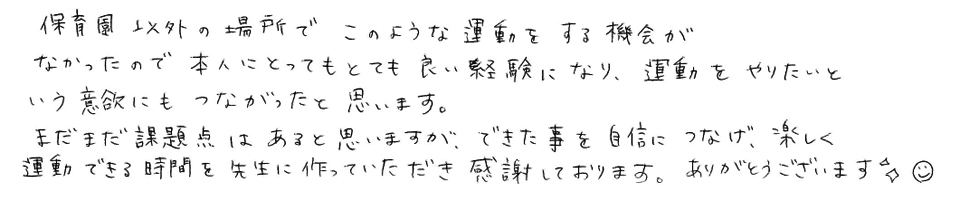 保育園以外の場所で このような運動をする機会が
なかったので 本人にとってもとても良い経験になり、運動をやりたいと
いう意欲にもつながったと思います。
まだまだ課題点はあると思いますが、できた事を自信につなげ、楽しく
運動できる時間を先生に作っていただき感謝しております。ありがとうございます✨☺